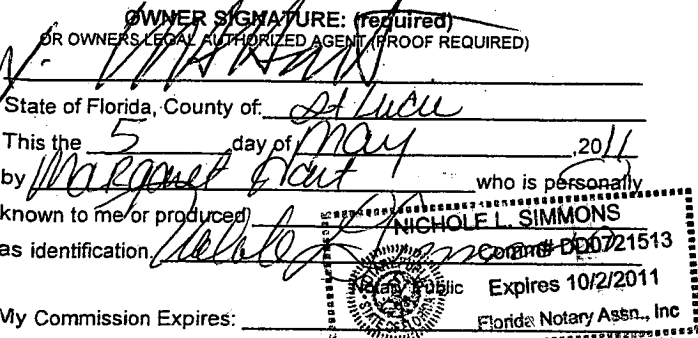 OWNER SIGNATURE: (required)
OR OWNERS LEGAL AUTHORIZED AGENT (PROOF REQUIRED)
State of Florida, County of: St Lucie
This the 5 day of May ,2011
by Margaret Hart who is personally
known to me or produced)
as identification.
NICHOLE L. SIMMONS
Comm# DD0721513
Notary Public
Expires 10/2/2011
Florida Notary Assn., Inc
NOTARY PUBLIC
STATE OF FLORIDA
My Commission Expires: